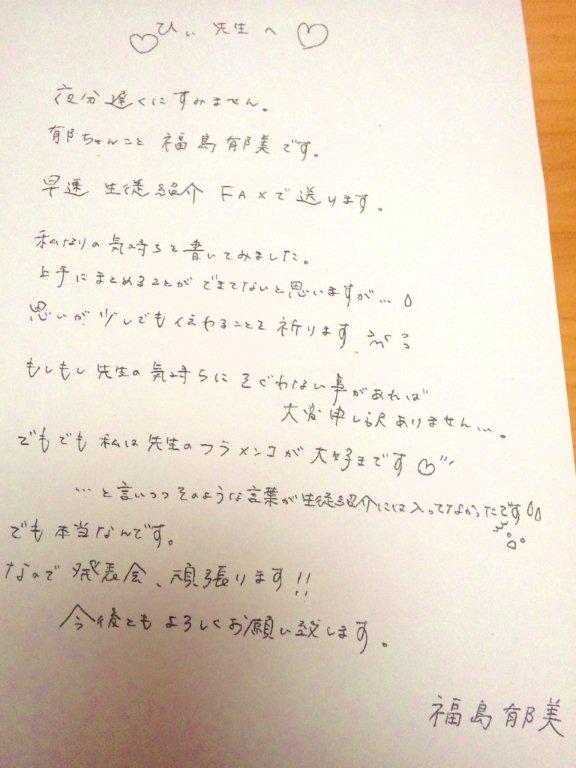 ♡ ひぃ 先生へ ♡
夜分遅くにすみません。
郁ちゃんこと 福島郁美です。
早速 生徒紹介 FAXで送ります。
私なりの気持ちを書いてみました。
上手にまとめることができてないと思いますが…
思いが少しでも伝わることを祈ります
もしもし先生の気持ちにそぐわない事があれば
大変申し訳ありません…。
でもでも 私は先生のフラメンコが大好きです♡
…と言いつつそのような言葉が生徒紹介には入ってなかったです
でも本当なんです。
なので発表会、頑張ります!!
今後ともよろしくお願い致します。
福島郁美